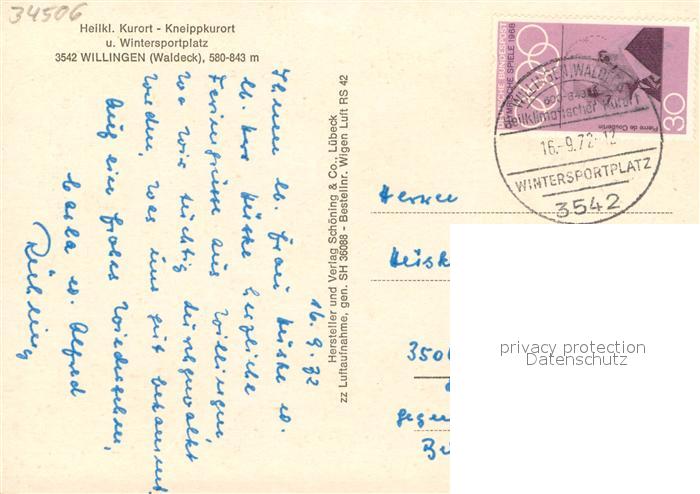 34506
Heilkl. Kurort - Kneippkurort
u. Wintersportplatz
3542 WILLINGEN (Waldeck), 580-843 m
16.9.72
Ihnen lb. Frau Heiske u.
lb. Herr Heiske herzliche
Feriengrüsse aus Willingen,
wo wir tüchtig durchgewalkt
werden, was uns gut bekommt.
Auf ein frohes Wiedersehen,
Carla u. Alfred
Hersteller und Verlag Schöning & Co., Lübeck
zz Luftaufnahme, gen. SH 36088 - Bestellnr. Wigen Luft RS 42
DEUTSCHE BUNDESPOST
OLYMPISCHE SPIELE 1968
Pierre de Coubertin
30
WILLINGEN, WALDECK
600-843 m
Heilklimatischer Kurort
16.-9.72-12
WINTERSPORTPLATZ
3542
Herrn
Heisk
350
gegen
privacy protection
Datenschutz